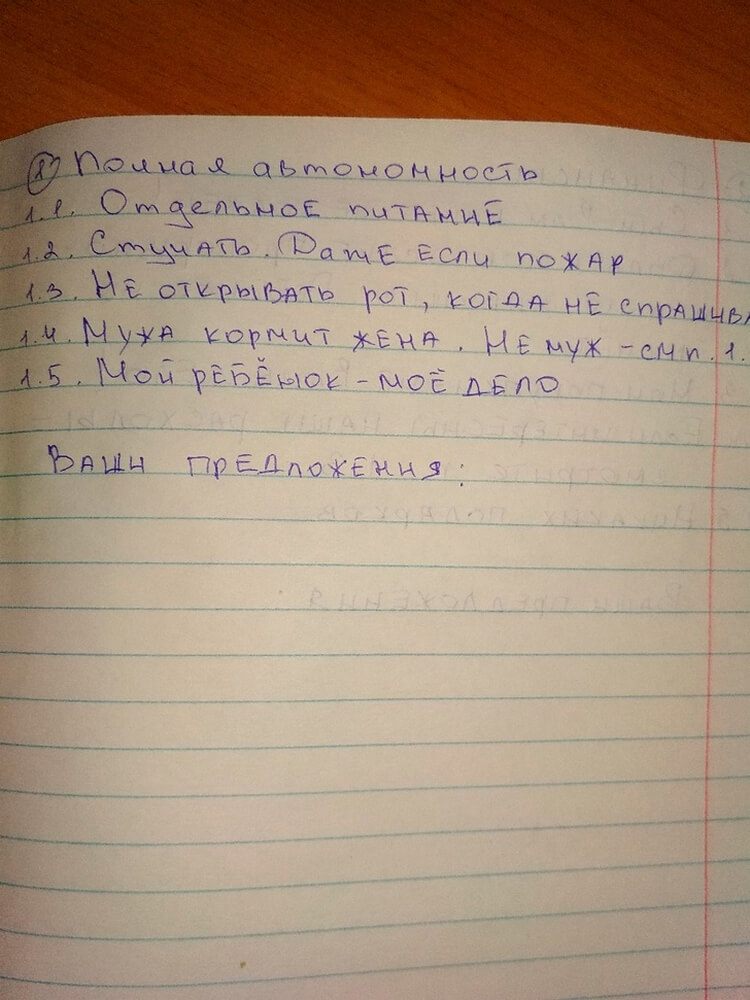 1) Полная автономность
1.1. Отдельное питание
1.2. Стучать. Даже если пожар
1.3. Не открывать рот, когда не спрашива
1.4. Мужа кормит жена. Не муж - см п. 1.
1.5. Мой ребёнок - моё дело
Ваши предложения: